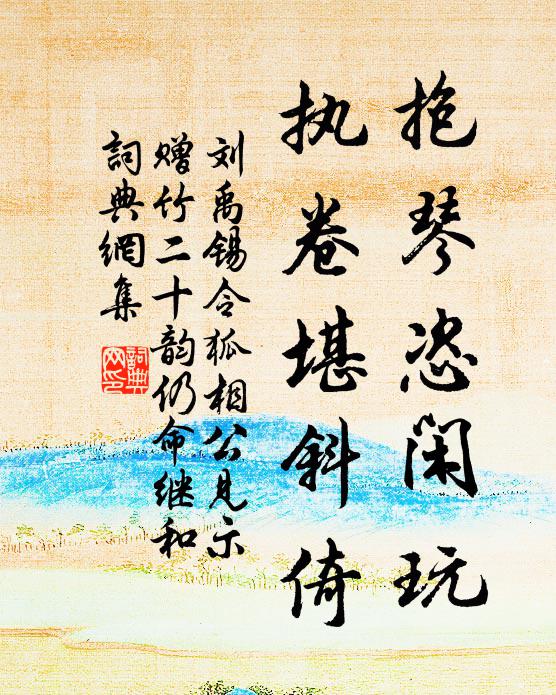 抱琴恣闲玩
执卷堪斜倚
刘禹锡令狐相公见示
赠竹二十韵仍命继和
詞典網集
詞典
网印